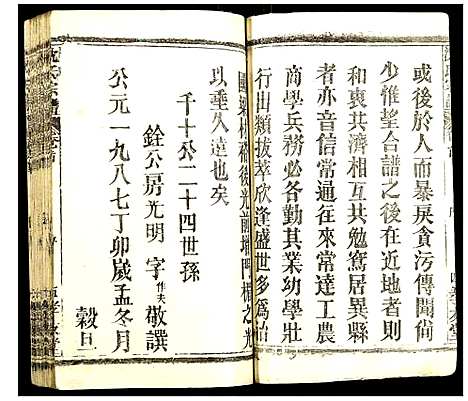 或後於人而暴戾貪污傳聞尚
少惟望合譜之後在近地者則
和衷共濟相互共勉寓居異縣
者亦音信常通往來常達工農
商學兵務必各勤其業幼學壯
行出類拔萃欣逢盛世多為治
國棟樑後光前增明楣之光
以垂久遠也矣
千十公二十四世孫
銓公房光明字作夫敬譔
公元一九八七丁卯歲孟冬月
穀旦